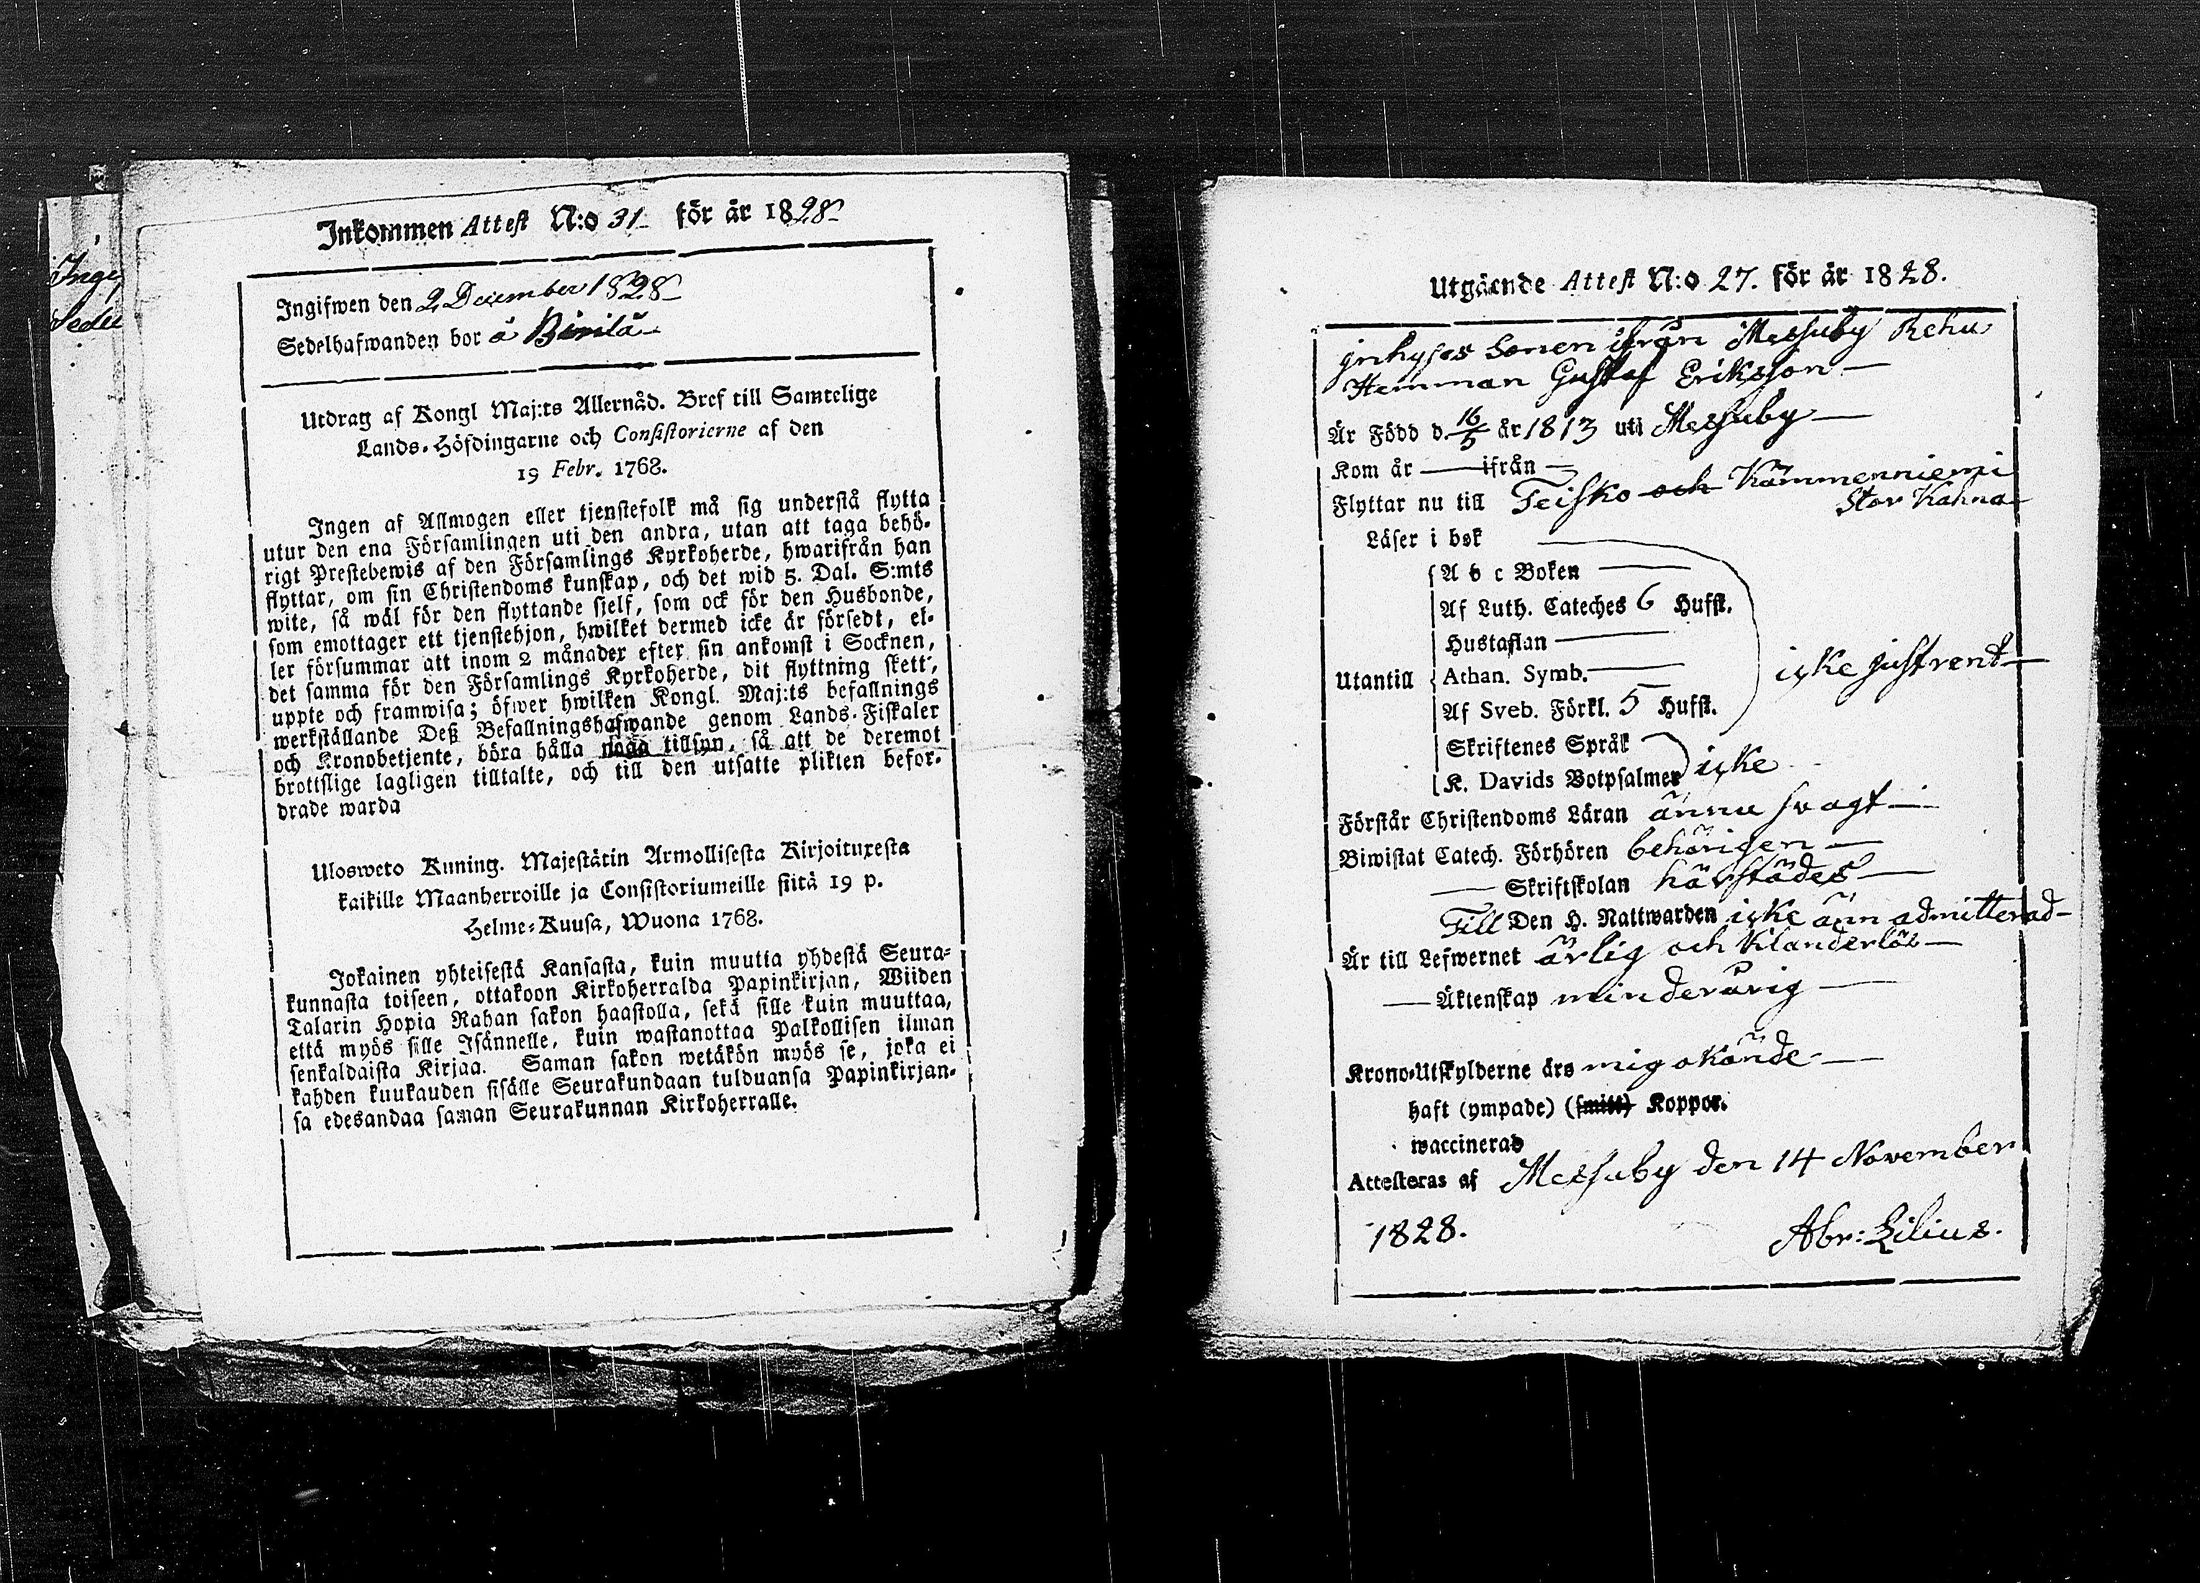 Inkommen Attest N:o 31 för år 1828
Ingifwen den 2 December 1828
Sedelhafwanden bor å
Utdrag af Kongl Maj:ts Allernåd. Bref till Samtelige
Lands-Höfdingarne och Consistorierne af den
19 Febr. 1768.
Ingen af Allmogen eller tjenstefolk må sig understå flytta
utur den ena Församlingen uti den andra, utan att taga behö-
rigt Prestebewis af den Församlings Kyrkoherde, hwarifrån han
flyttar, om sin Christendoms kunskap, och det wid 5. Dal. S:mts
wite, så wäl för den flyttande sjelf, som ock för den Husbonde,
som emottager ett tjenstehjon, hwilket dermed icke är försedt, el-
ler försummar att inom 2 månader efter sin ankomst i Socknen,
det samma för den Församlings Kyrkoherde, dit flyttning skett,
uppte och framwisa; öfwer hwilken Kongl. Maj:ts befallnings
werkställande Deß Befallningshafwande genom Lands-Fiskaler
och Kronobetjente, böra hålla noga tillsyn, så att de deremot
brottslige lagligen tilltalte, och till den utsatte plikten befor-
drade warda
Ulosweto Kuning. Majestätin Armollisesta Kirjoituxesta
kaikille Maanherroille ja Consistoriumeille siitä 19 p.
Helme-Kuusa, Wuona 1768.
Jokainen yhteisestä Kansasta, kuin muutta yhdestä Seura-
kunnasta toiseen, ottakoon Kirkoherralda Papinkirjan, Wiiden
Talarin Hopia Rahan sakon haastolla, sekä sille kuin muuttaa,
että myös sille Isännelle, kuin wastanottaa Palkollisen ilman
senkaldaista Kirjaa. Saman sakon wetäkön myös se, joka ei
kahden kuukauden sisälle Seurakundaan tulduansa Papinkirjan-
sa edesandaa saman Seurakunnan Kirkoherralle.
Utgående Attest N:o 27. för år 1828.
jnhyses Sonen ifrån Messuby Rehu
Hemman Gustaf Eriksson
Är Född d. 16/5 år 1813 uti Messuby
Kom år — ifrån —
Flyttar nu till Teisko och Kämmenniemi
Stor Kahna
Läser i bok
A b c Boken
Af Luth. Cateches 6 Hufst.
Hustaflan
Utantill Athan. Symb. icke just rent
Af Sveb. Förkl. 5 Hufst.
Skriftenes Språk
K. Davids Botpsalmer icke
Förstår Christendoms Läran ännu svagt
Biwistat Catech. Förhören behörigen
— Skriftskolan härstädes
Till Den H. Nattwarden icke änn admitterad
Är till Lefwernet ärlig och klanderlös
— Äktenskap minderårig
Krono-Utskylderne äro mig okände
haft (ympade) (smitt) Koppor.
waccinerad
Attesteras af Messuby den 14 November
1828. Abr: Lilius.